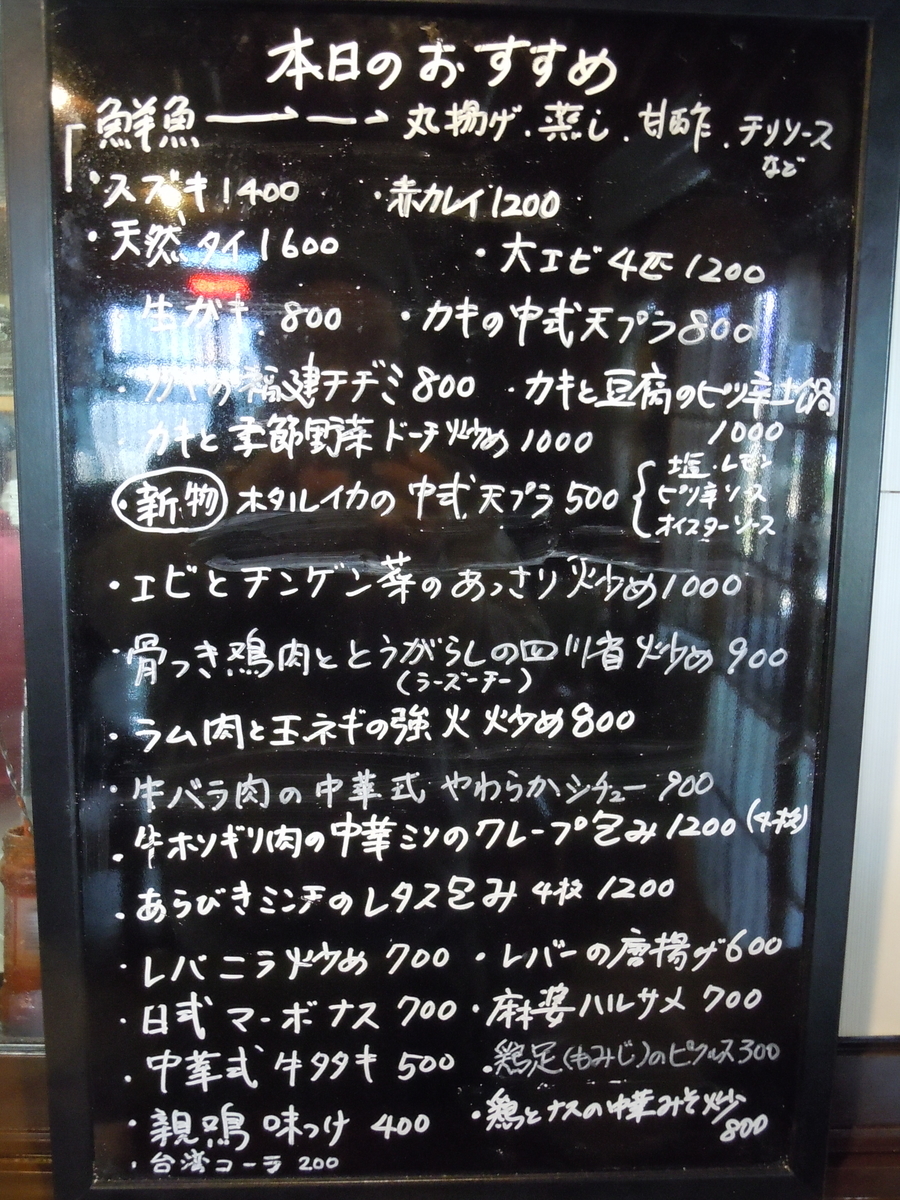 本日のおすすめ
鮮魚 → → 丸揚げ、蒸し、甘酢、チリソースなど
・スズキ 1400 ・赤カレイ 1200
・天然タイ 1600 ・大エビ4匹 1200
生がキ 800 ・カキの中式天プラ 800
・カキの福建チヂミ 800 ・カキと豆腐のピリ辛土鍋 1000
・カキと季節野菜ドーチ炒め 1000
・新物 ホタルイカの中式天プラ 500 { 塩・レモン
ピリ辛ソース
オイスターソース
・エビとチンゲン菜のあっさり炒め 1000
・骨つき鶏肉ととうがらしの四川省炒め 900
(ラーズーチー)
・ラム肉と玉ネギの強火炒め 800
・牛バラ肉の中華式やわらかシチュー 900
・牛ホソギリ肉の中華ミソのクレープ包み 1200 (4枚)
・あらびきミンチのレタス包み 4枚 1200
・レバニラ炒め 700 ・レバーの唐揚げ 600
・日式マーボナス 700 ・麻婆ハルサメ 700
・中華式牛タタキ 500 ・鶏足(もみじ)のピクルス 300
・親鶏味つけ 400 ・鶏とナスの中華みそ炒 800
・台湾コーラ 200